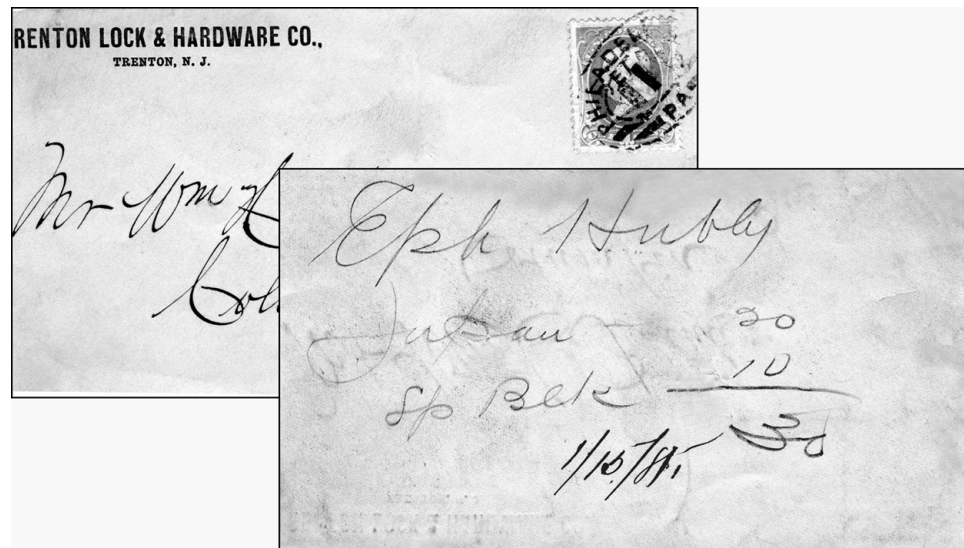 RENTON LOCK & HARDWARE CO.,
TRENTON, N. J.
PHILADEL
PA
Mr Wm H
Col
Eph Hubly
Japan 20
Sp Blk 10
30